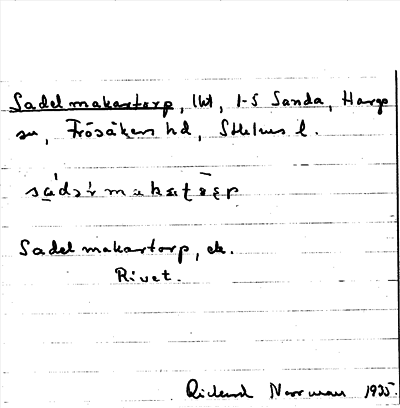 Sadelmakartorp, lht, 1-5 Sanda, Hargs
sn, Frösåkers hd, Sthlms l.
Sadelmakartorp, ek.
Rivet.
Rickard Norrman 1935.